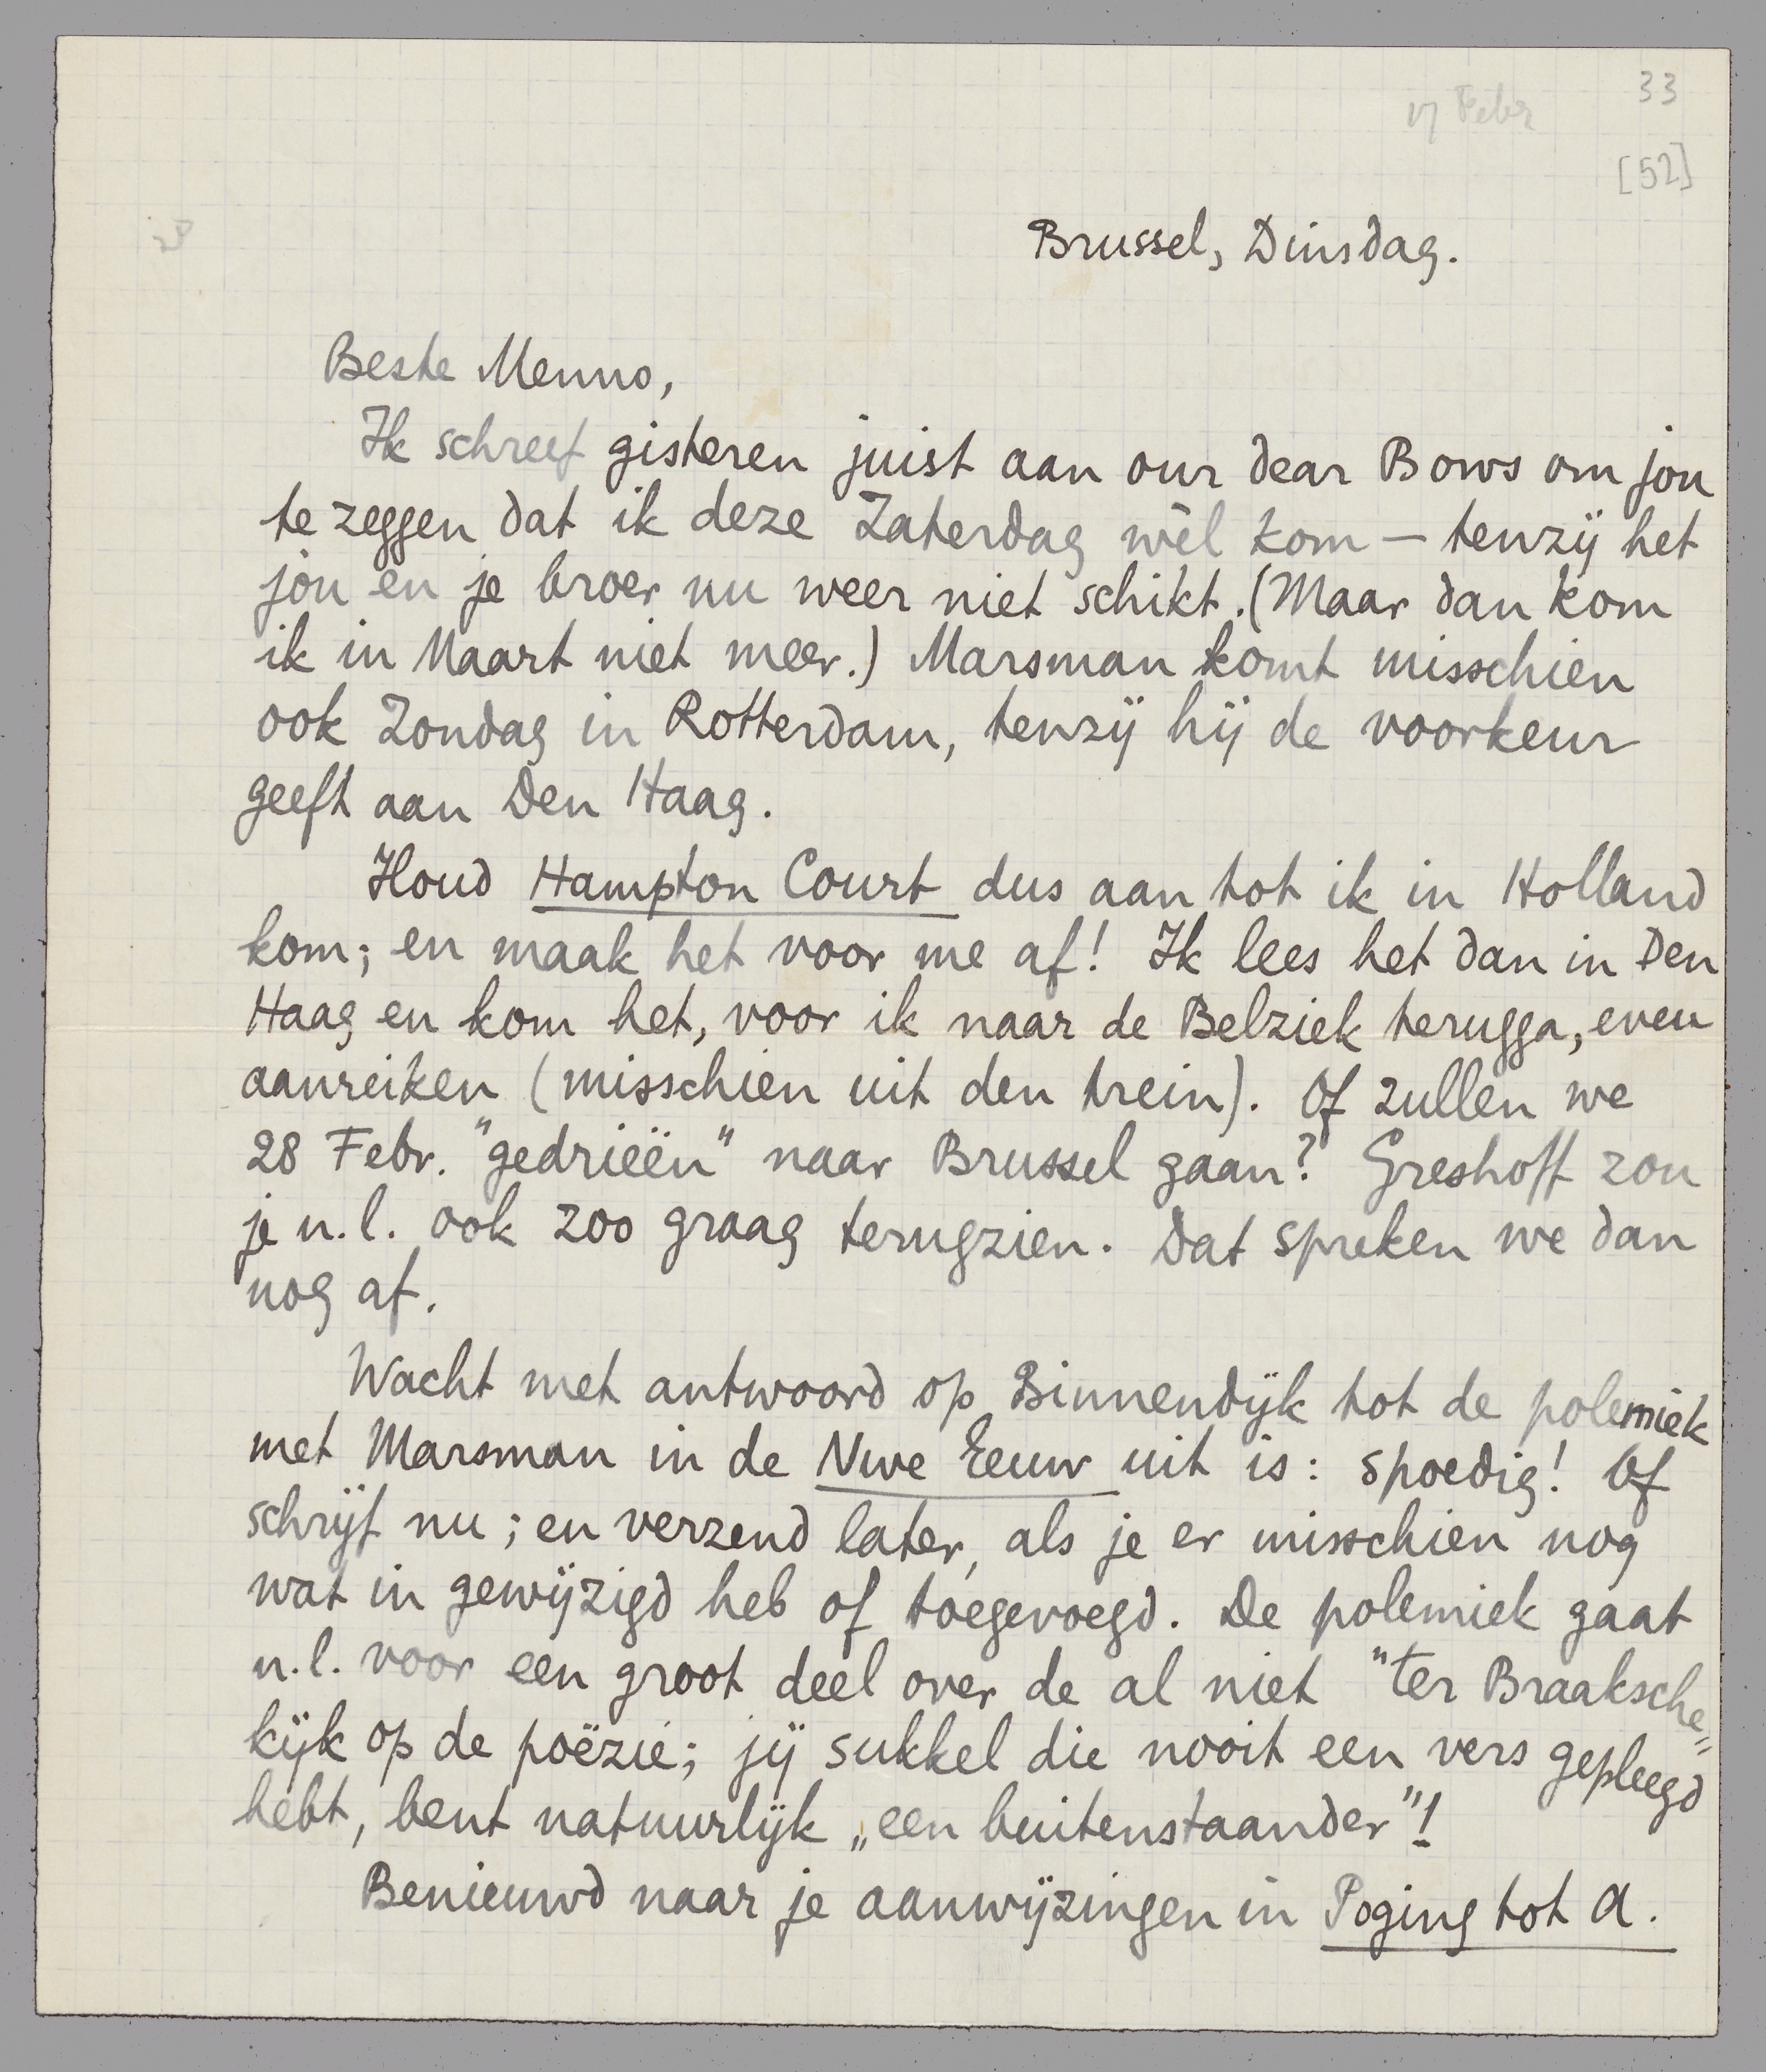 33
17 Febr
[52]
Brussel, Dinsdag.
Beste Menno,
Ik schreef gisteren juist aan our dear Bows om jou
te zeggen dat ik deze Zaterdag wèl kom — tenzij het
jou en je broer nu weer niet schikt. (Maar dan kom
ik in Maart niet meer.) Marsman komt misschien
ook Zondag in Rotterdam, tenzij hij de voorkeur
geeft aan Den Haag.
Houd Hampton Court dus aan tot ik in Holland
kom; en maak het voor me af! Ik lees het dan in Den
Haag en kom het, voor ik naar de Belziek terugga, even
aanreiken (misschien uit den trein). Of zullen we
28 Febr. "gedrieën" naar Brussel gaan? Greshoff zou
je n.l. ook zoo graag terugzien. Dat spreken we dan
nog af.
Wacht met antwoord op Binnendijk tot de polemiek
met Marsman in de Nwe Eeuw uit is: spoedig! Of
schrijf nu; en verzend later, als je er misschien nog
wat in gewijzigd heb of toegevoegd. De polemiek gaat
n.l. voor een groot deel over de al niet "ter Braaksche"
kijk op de poëzie; jij sukkel die nooit een vers gepleegd
hebt, bent natuurlijk „een buitenstaander"!
Benieuwd naar je aanwijzingen in Poging tot A.